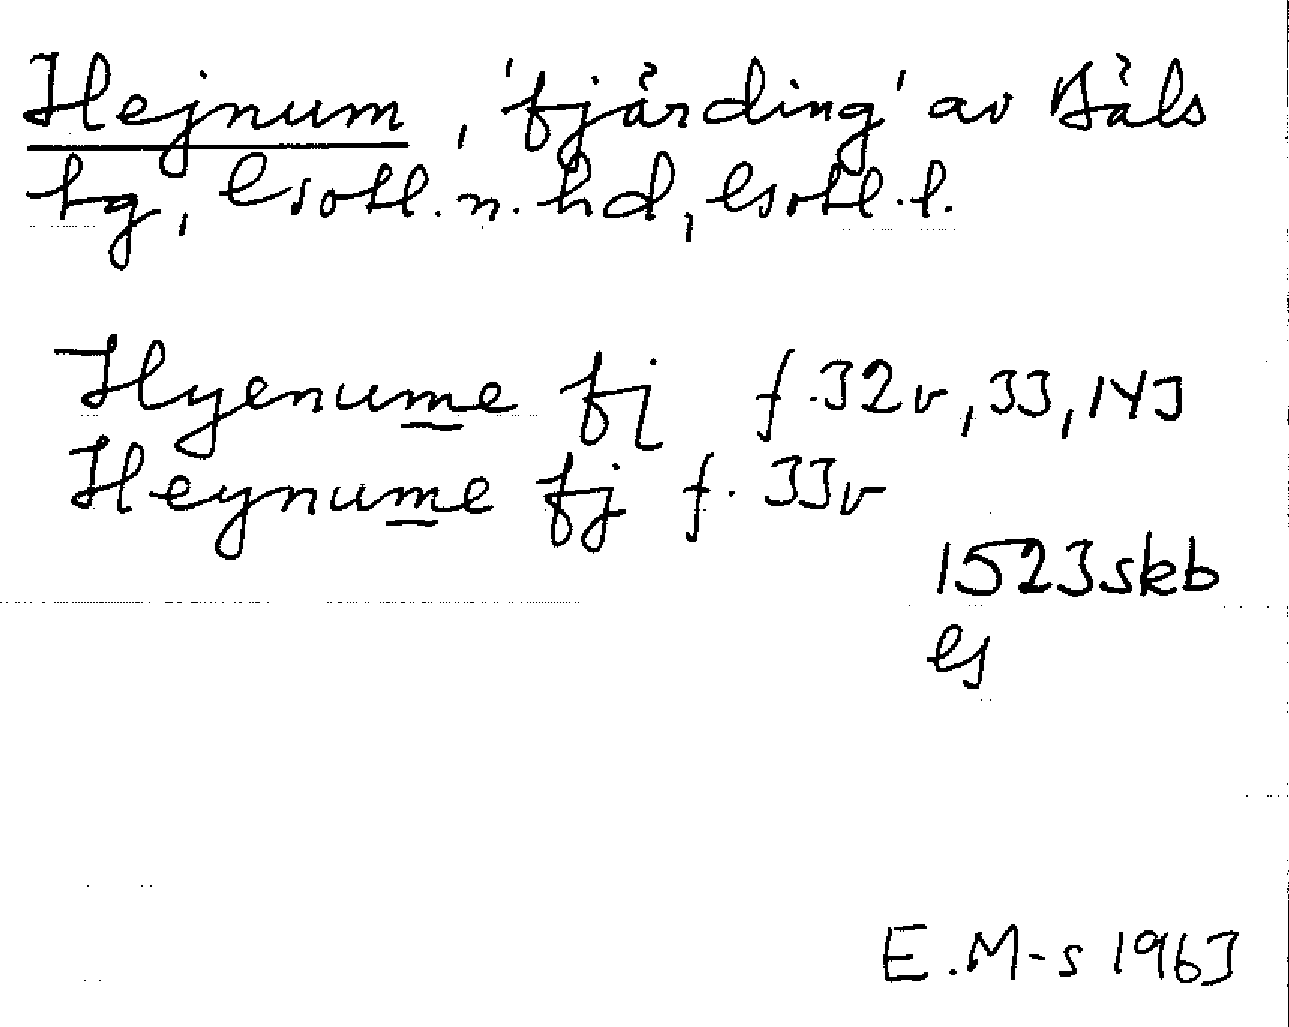 Hejnum, 'fjärding' av Bäls
tg, Gotl. n. hd, Gotl. l.
Hyenume fj f. 32v, 33, 143
Heynume fj f. 33v
1523 skb
G
E. M-s 1963